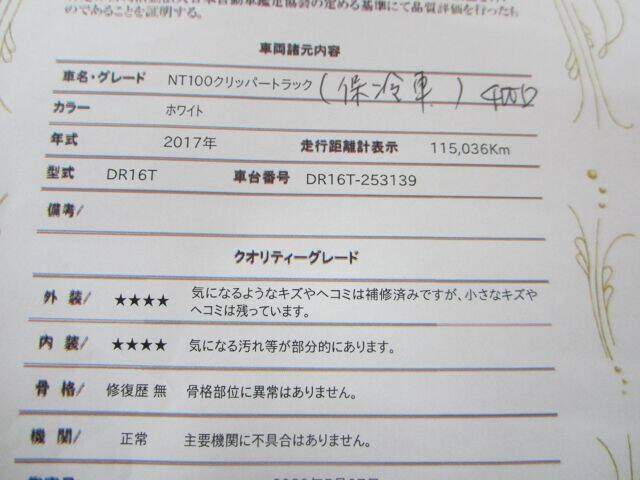 のであることを証明する。
車両諸元内容
車名・グレード NT100クリッパートラック (保冷車) 4WD
カラー ホワイト
年式 2017年 走行距離計表示 115,036Km
型式 DR16T 車台番号 DR16T-253139
備考/
クオリティーグレード
外 装/ ★★★★ 気になるようなキズやヘコミは補修済みですが、小さなキズや
ヘコミは残っています。
内 装/ ★★★★ 気になる汚れ等が部分的にあります。
骨 格/ 修復歴 無 骨格部位に異常はありません。
機 関/ 正常 主要機関に不具合はありません。